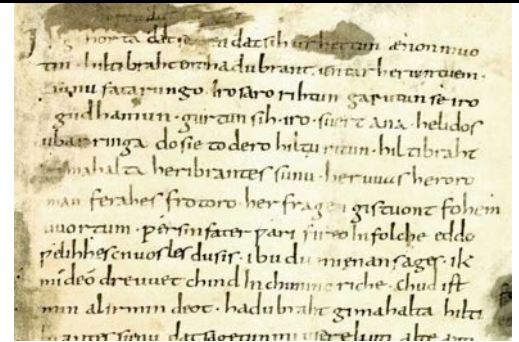 horta dat dat sih urhettun ænon muo
tin · hiltibraht enti hadubrant · untar heriuntuem ·
sunu fatarungo · iro saro rihtun garutun se iro
gudhamun · gurtun sih · iro · suert ana · helidos
ubar ringa do sie to dero hiltu ritun · hiltibraht
gimahalta heribrantes sunu · her uuas heroro
man ferahes frotoro · her fragen gistuont fohem
uuortum · ƿer sin fater ƿari fireo In folche eddo
ƿelihhes cnuosles du sis · ibu du mi enan sages · ik
mi deo dre uuet chind In chunincriche · chud ist
min al irmin deot · hadubraht gimahalta hilti
brantes sunu dat sagetun mi usere liuti alte anti